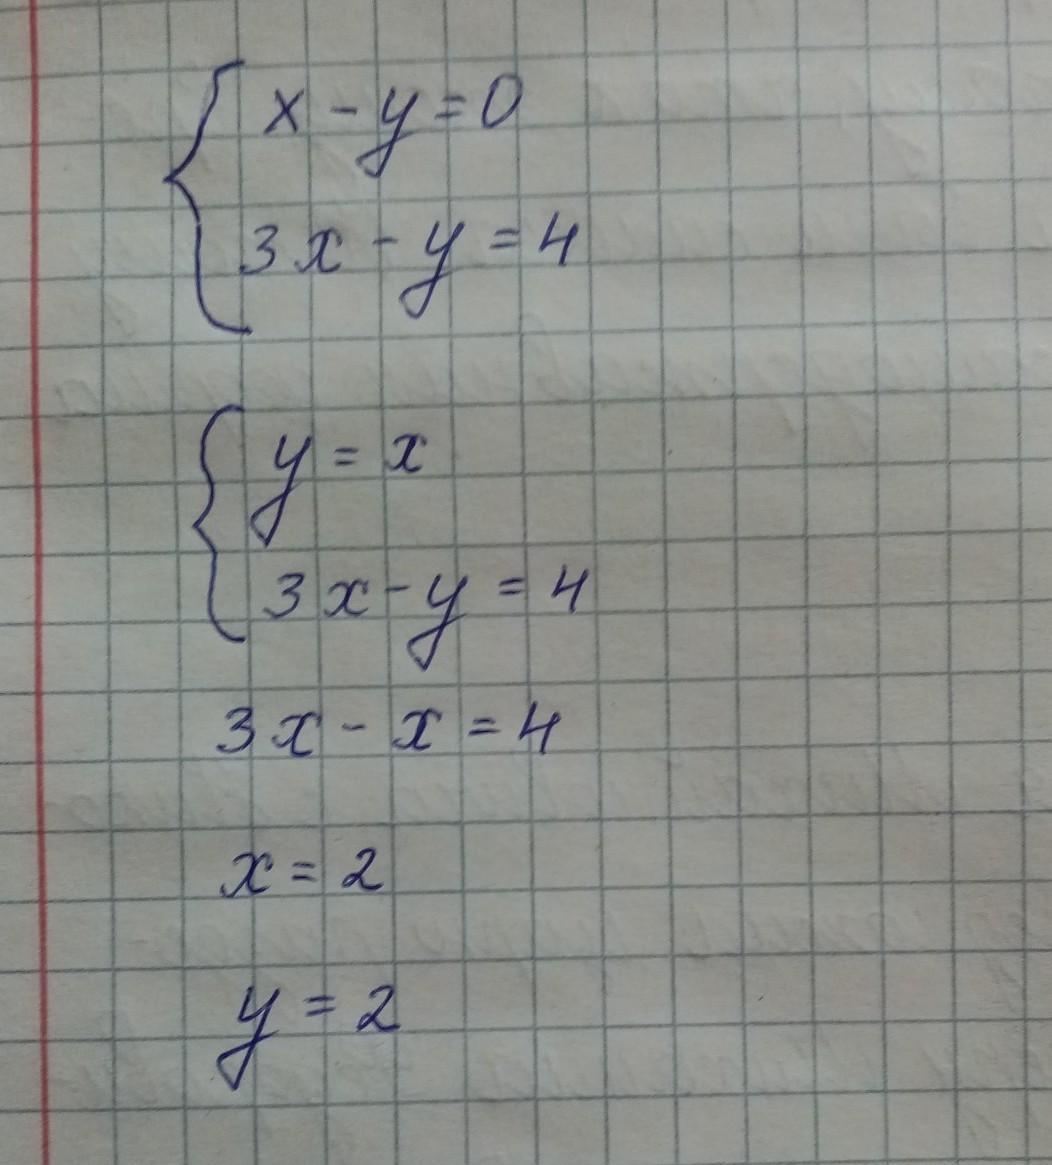 x - y = 0
3x - y = 4
y = x
3x - y = 4
3x - x = 4
x = 2
y = 2